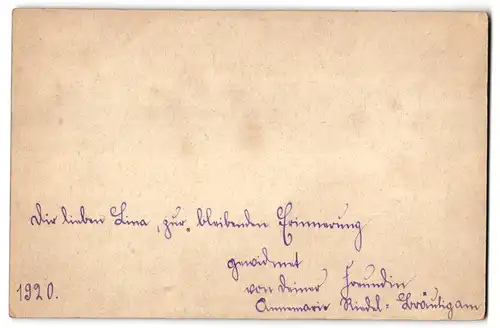 Dir lieben Lina, zur bleibenden Erinnerung
gewidmet
von Deiner Freundin
1920.
Annemarie Riedel-Bräutigam